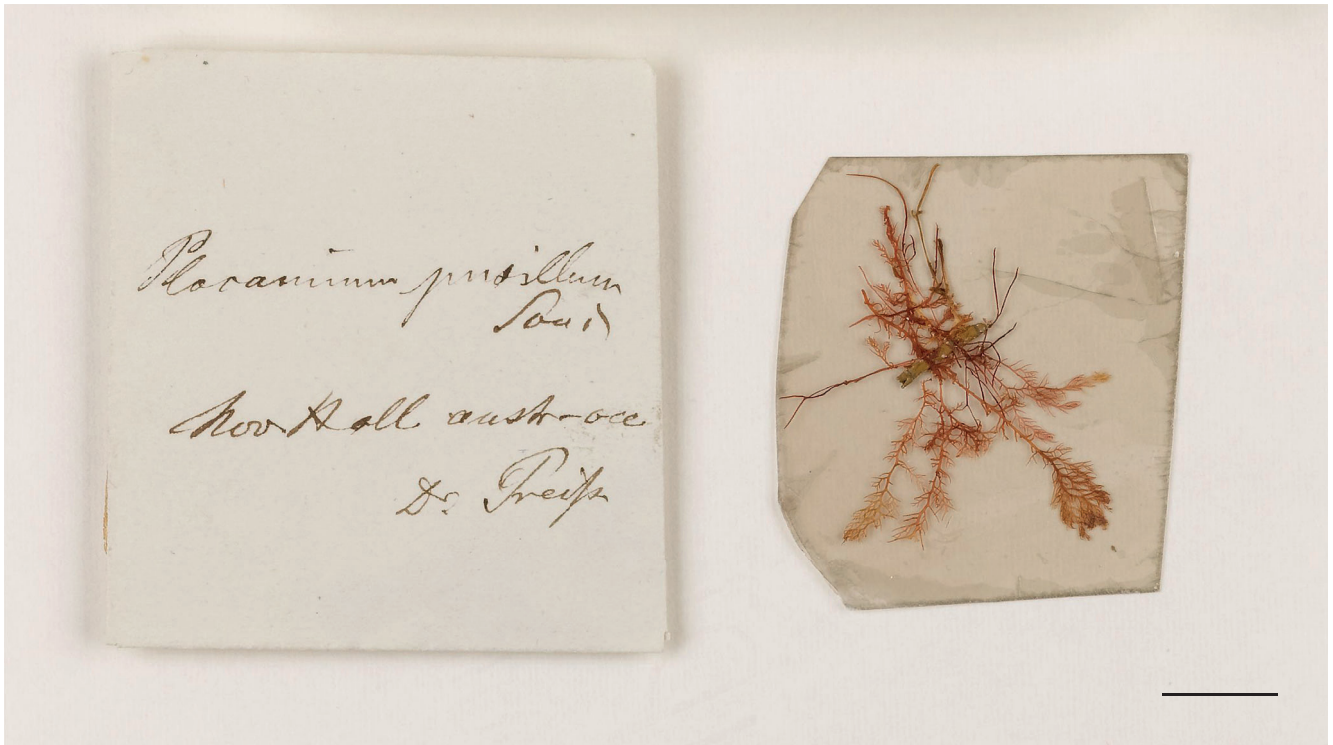 Plocamium pusillum
Sond
Nov Holl austr-occ
Dr. Preiſs